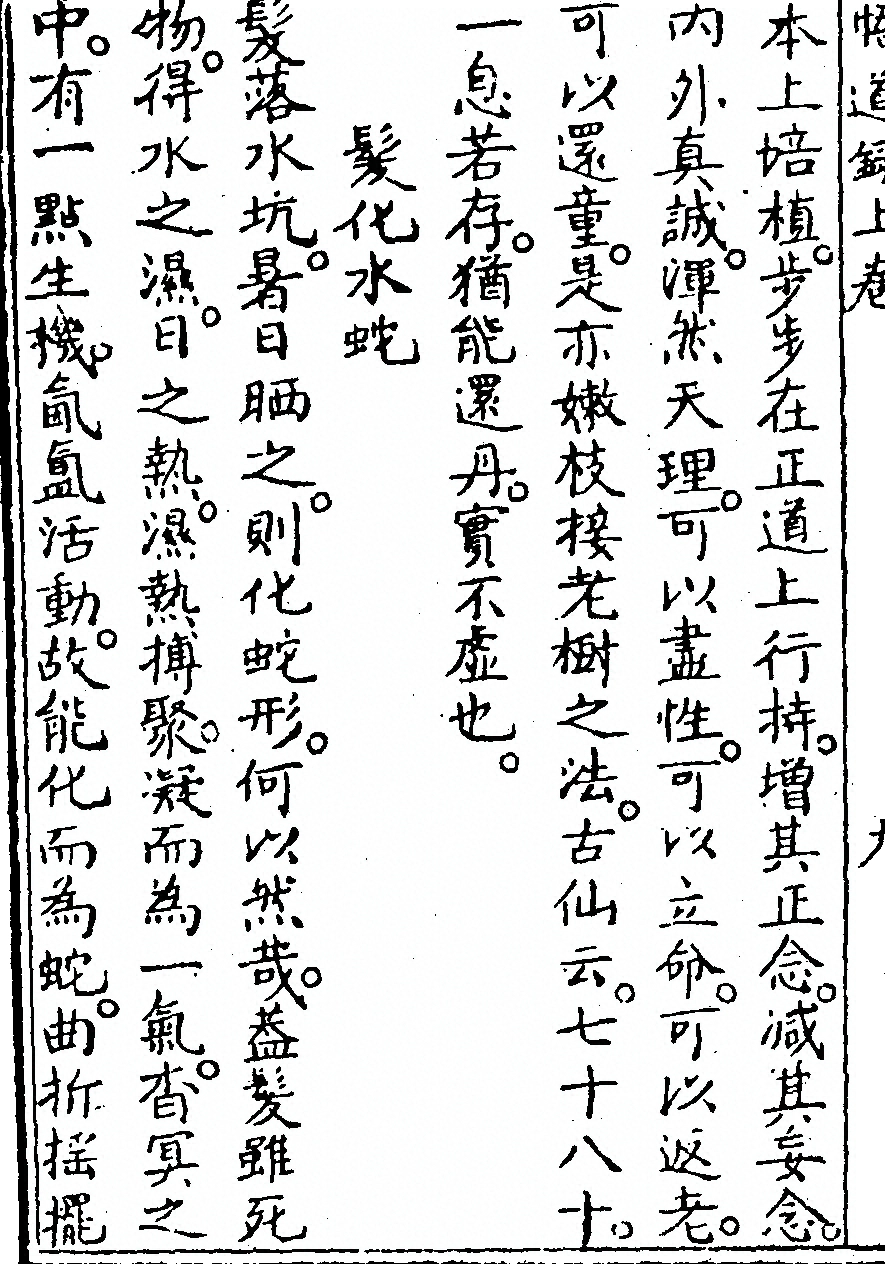 悟道錄上卷 九
本上培植。步步在正道上行持。增其正念。减其妄念。
内外真誠。渾然天理。可以盡性。可以立命。可以返老。
可以還童。是亦嫩枝接老樹之法。古仙云。七十八十。
一息若存。猶能還丹。實不虛也。
髮化水蛇
髮落水坑。暑日晒之。則化蛇形。何以然哉。葢髮雖死
物。得水之濕。日之熱。濕熱摶聚。凝而為一氣。杳冥之
中。有一點生機。氤氳活動。故能化而為蛇。曲折摇擺